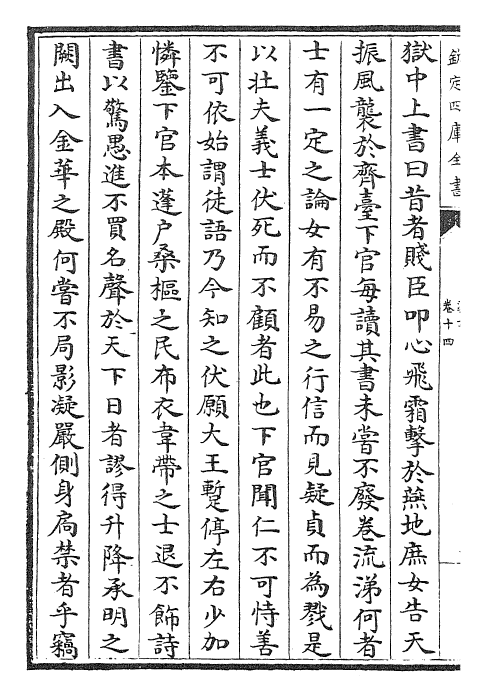 欽定四庫全書
卷十四
獄中上書曰昔者賤臣叩心飛霜擊於燕地庶女告天
振風襲於齊臺下官每讀其書未嘗不廢卷流涕何者
士有一定之論女有不易之行信而見疑貞而為戮是
以壯夫義士伏死而不顧者此也下官聞仁不可恃善
不可依始謂徒語乃今知之伏願大王蹔停左右少加
憐鑒下官本蓬户桑樞之民布衣韋帶之士退不飾詩
書以驚愚進不買名聲於天下日者謬得升降承明之
闕出入金華之殿何嘗不局影凝嚴側身扃禁者乎竊